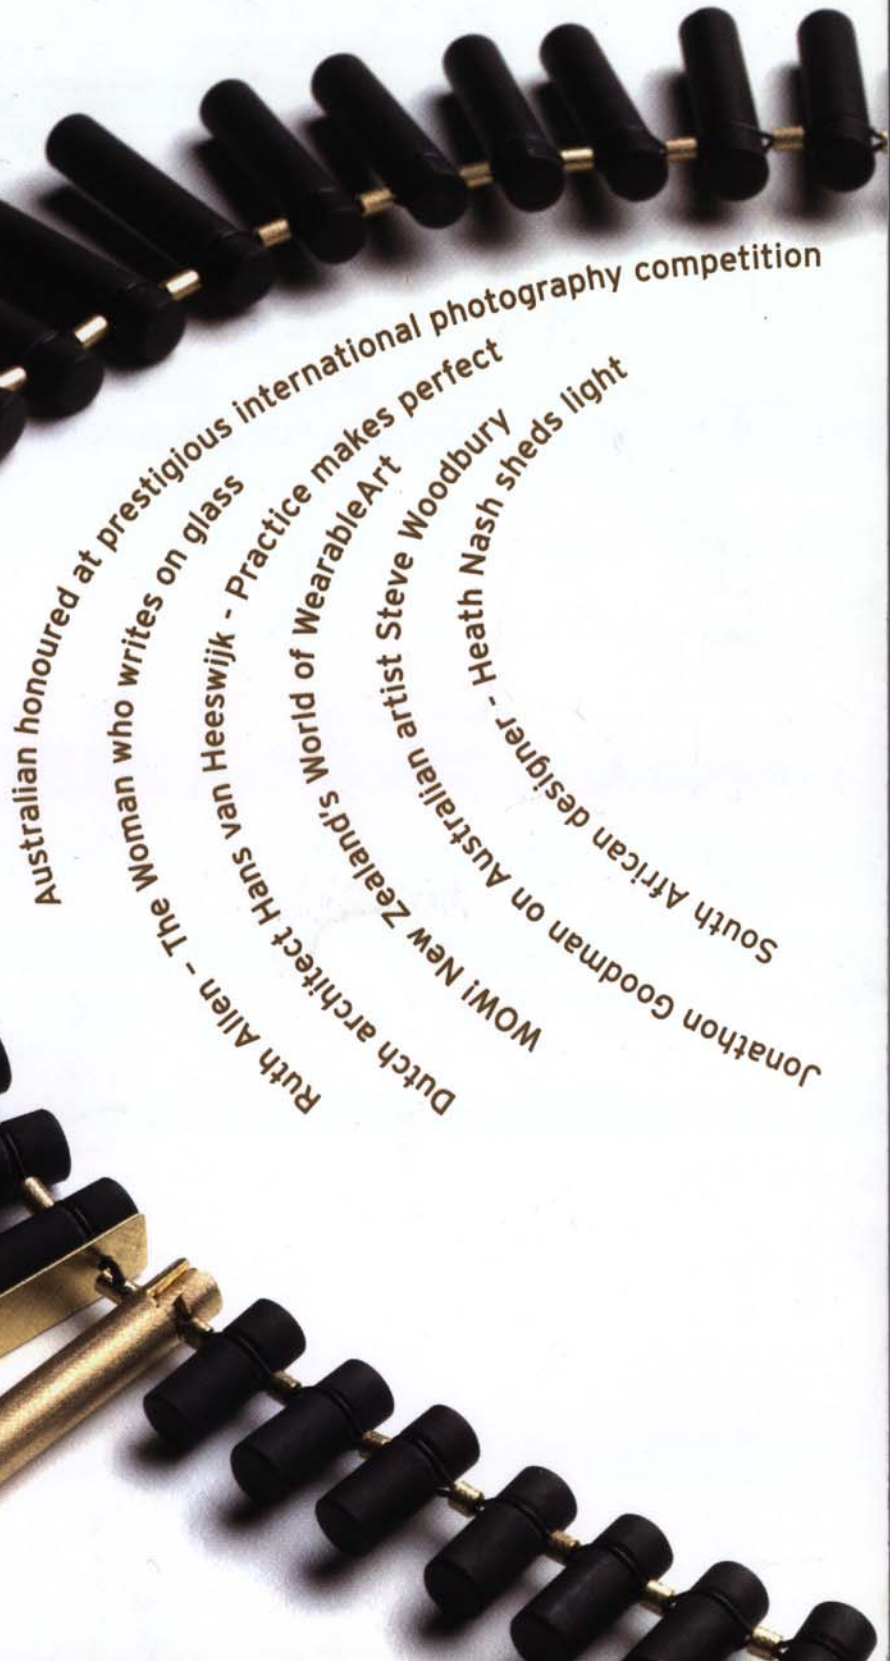 Australian honoured at prestigious international photography competition
Ruth Allen - The Woman who writes on glass
Dutch architect Hans van Heeswijk - Practice makes perfect
WOW! New Zealand's World of WearableArt
Jonathon Goodman on Australian artist Steve Woodbury
South African designer - Heath Nash sheds light